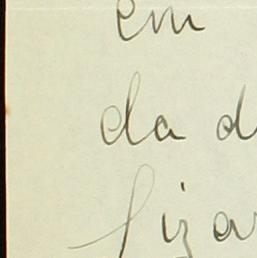 em
da d
fizar